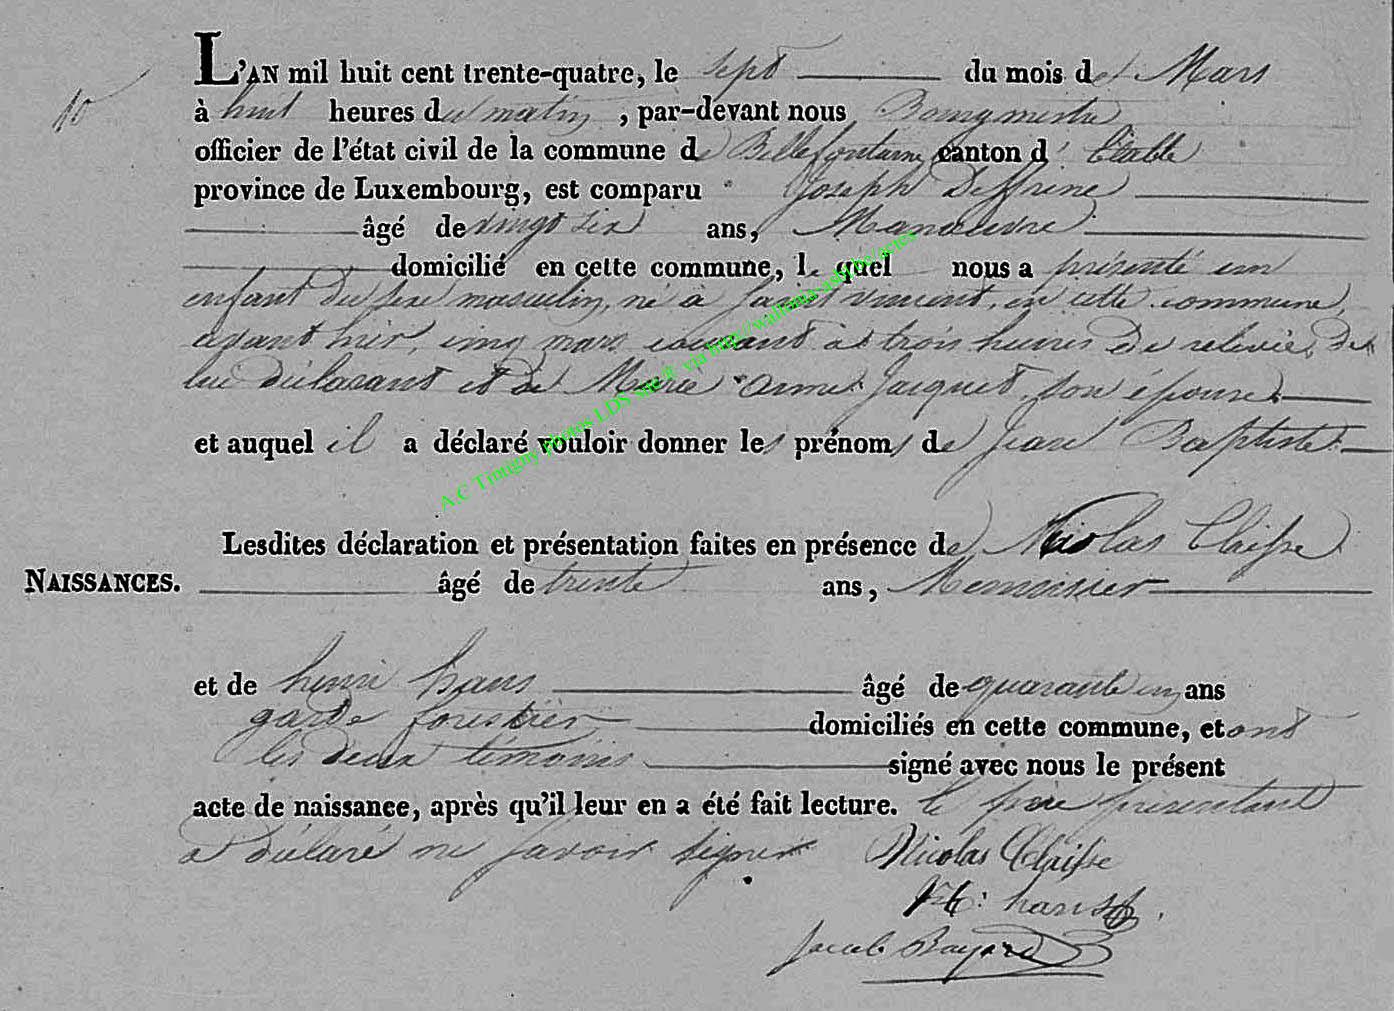 L'AN mil huit cent trente-quatre, le sept du mois de Mars
10 à huit heures du matin, par-devant nous Bourgmestre
officier de l'état civil de la commune de Bellefontaine canton d'Etable
province de Luxembourg, est comparu Joseph Deffrine
âgé de vingt six ans, Manoeuvre
domicilié en cette commune, le quel nous a présenté un
enfant du sexe masculin, né à Saint vincent, en cette commune,
avant hier, cinq mars courant à trois heures de relevée, de
lui déclarant et de Marie Anne Jacquet, son épouse
et auquel il a déclaré vouloir donner les prénoms de Jean Baptiste
A.C Tintigny photos LDS via http://wallonia-asbl.be/actes
Lesdites déclaration et présentation faites en présence de Nicolas Claisse
NAISSANCES. âgé de trente ans, Menuisier
et de henri hans âgé de quarante un ans
garde forestier domiciliés en cette commune, et ont
les deux témoins signé avec nous le présent
acte de naissance, après qu'il leur en a été fait lecture. le père présentant
a déclaré ne savoir signer Nicolas Claisse
H: hans
Jacob Bayard